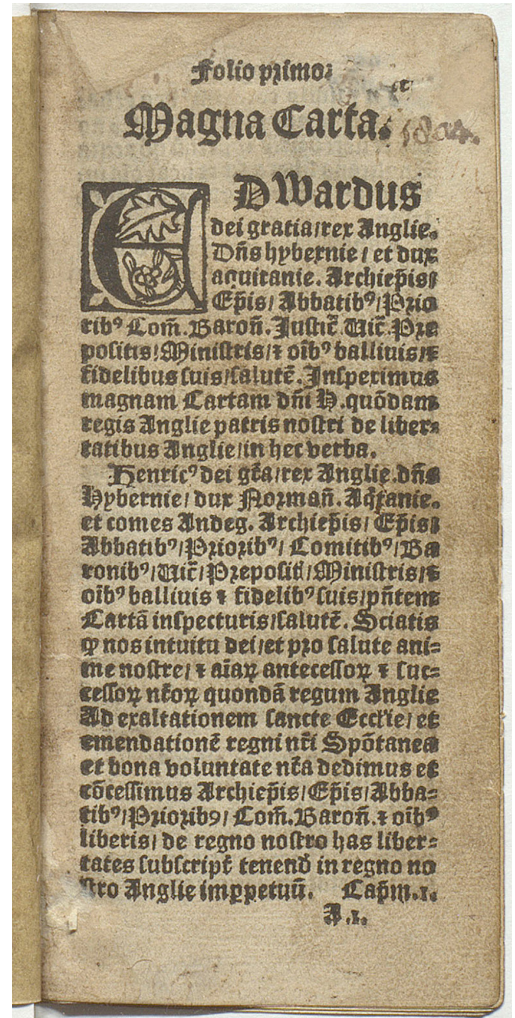 Folio primo.
Magna Carta. 1804.
EDwardus
dei gratia/rex Anglie.
Dñs hybernie/ et dux
aquitanie. Archiep̄is/
Ep̄is/ Abbatibꝰ/Prio
ribꝰ Com̄. Baroñ. Justic̄. Uic̄. Pre
positis/Ministris/⁊ oībꝰ balliuis/⁊
fidelibus suis/salutē. Inspeximus
magnam Cartam dñi H.quōdam
regis Anglie patris nostri de liber⸗
tatibus Anglie/in hec verba.
Henricꝰ dei gr̄a/rex Anglie.dñs
Hybernie/ dux Normañ. Aq̄tanie.
et comes Andeg. Archiep̄is/ Ep̄is/
Abbatibꝰ/Prioribꝰ/ Comitibꝰ/Ba
ronibꝰ/Uic̄/Prepositī/Ministris/⁊
oībꝰ balliuis ⁊ fidelibꝰ suis/pñtem
Cartā inspecturis/salutē. Sciatis
ꝙ nos intuitu dei/et pro salute ani⸗
me nostre/ ⁊ aīaꝝ antecessoꝝ ⁊ suc⸗
cessoꝝ nr̄oꝝ quondā regum Anglie
Ad exaltationem sancte Eccl̄ie/ et
emendationē regni nr̄i Spōtanea
et bona voluntate nr̄a dedimus et
cōcessimus Archiep̄is/Ep̄is/Abba⸗
tibꝰ/Prioribꝰ/ Com̄. Baroñ. ⁊ oībꝰ
liberis/ de regno nostro has liber⸗
tates subscript̄ tenend̄ in regno no
stro Anglie imꝑpetuū. Cap̄m.i.
A.i.